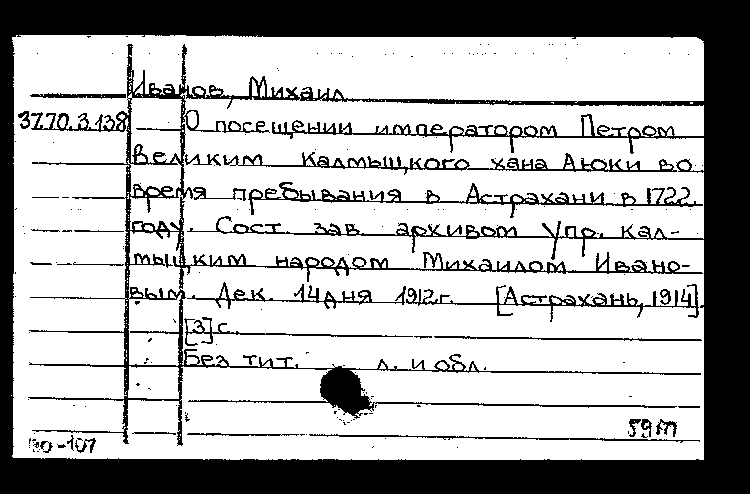 Иванов, Михаил
37.70.3.138 О посещении императором Петром
Великим Калмыцкого хана Аюки во
время пребывания в Астрахани в 1722
году. Сост. зав. архивом Упр. кал-
мыцким народом Михаилом Ивано-
вым. Дек. 14 дня 1912 г. [Астрахань, 1914].
[3] с.
Без тит. л. и обл.
59М
-107